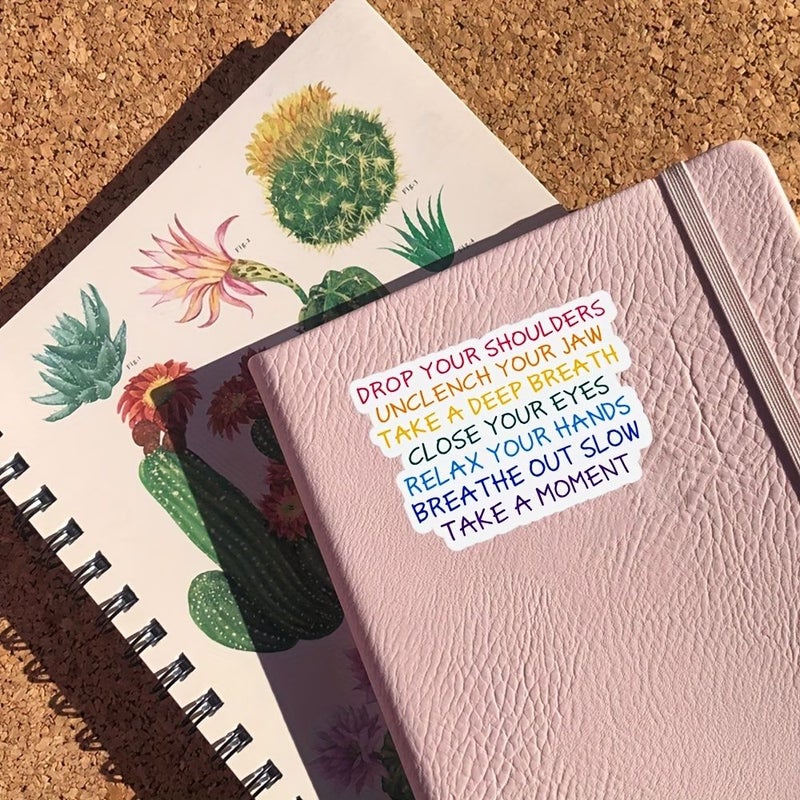 Fig.1
Fig.2
Fig.1
DROP YOUR SHOULDERS
UNCLENCH YOUR JAW
TAKE A DEEP BREATH
CLOSE YOUR EYES
RELAX YOUR HANDS
BREATHE OUT SLOW
TAKE A MOMENT